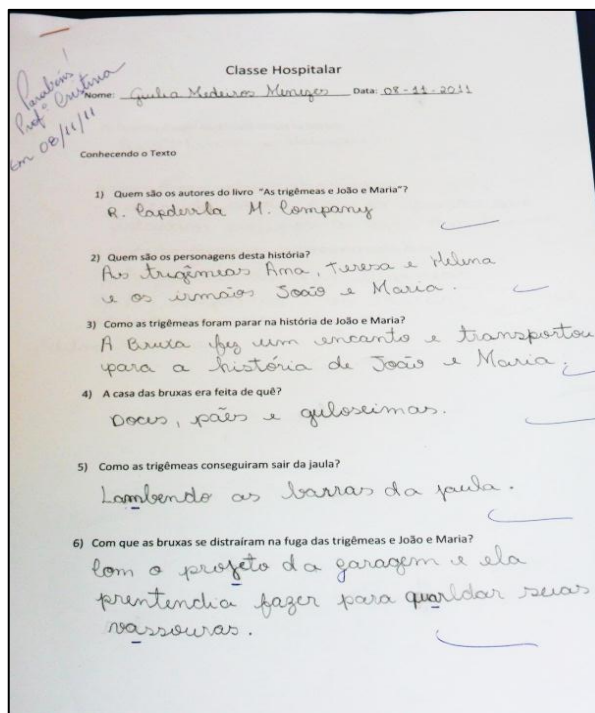 Parabéns!
Profª Cristina
Em 08/11/11
Classe Hospitalar
Nome: Giulia Medeiros Menezes Data: 08-11-2011
Conhecendo o Texto
1) Quem são os autores do livro "As trigêmeas e João e Maria"?
R. Capdevila M. Company
2) Quem são os personagens desta história?
As trigêmeas Ana, Teresa e Helena
e os irmãos João e Maria.
3) Como as trigêmeas foram parar na história de João e Maria?
A Bruxa fez um encanto e transportou
para a história de João e Maria.
4) A casa das bruxas era feita de quê?
Doces, pães e guloseimas.
5) Como as trigêmeas conseguiram sair da jaula?
Lambendo as barras da jaula.
6) Com que as bruxas se distraíram na fuga das trigêmeas e João e Maria?
Com o projeto da garagem e ela
prentendia fazer para quarldar suas
vassouras.